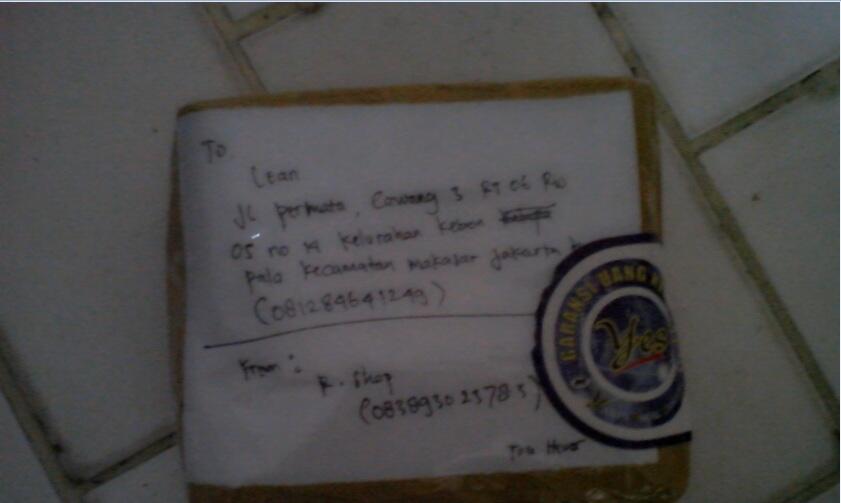 To
Lean
JL permata, Cawang 3 RT 06 RW
05 no 14 Kelurahan Kebon
pala Kecamatan Makasar Jakarta
(081284641249)
From :
R. Shop
(083893023783)
GARANSI UANG
Yes